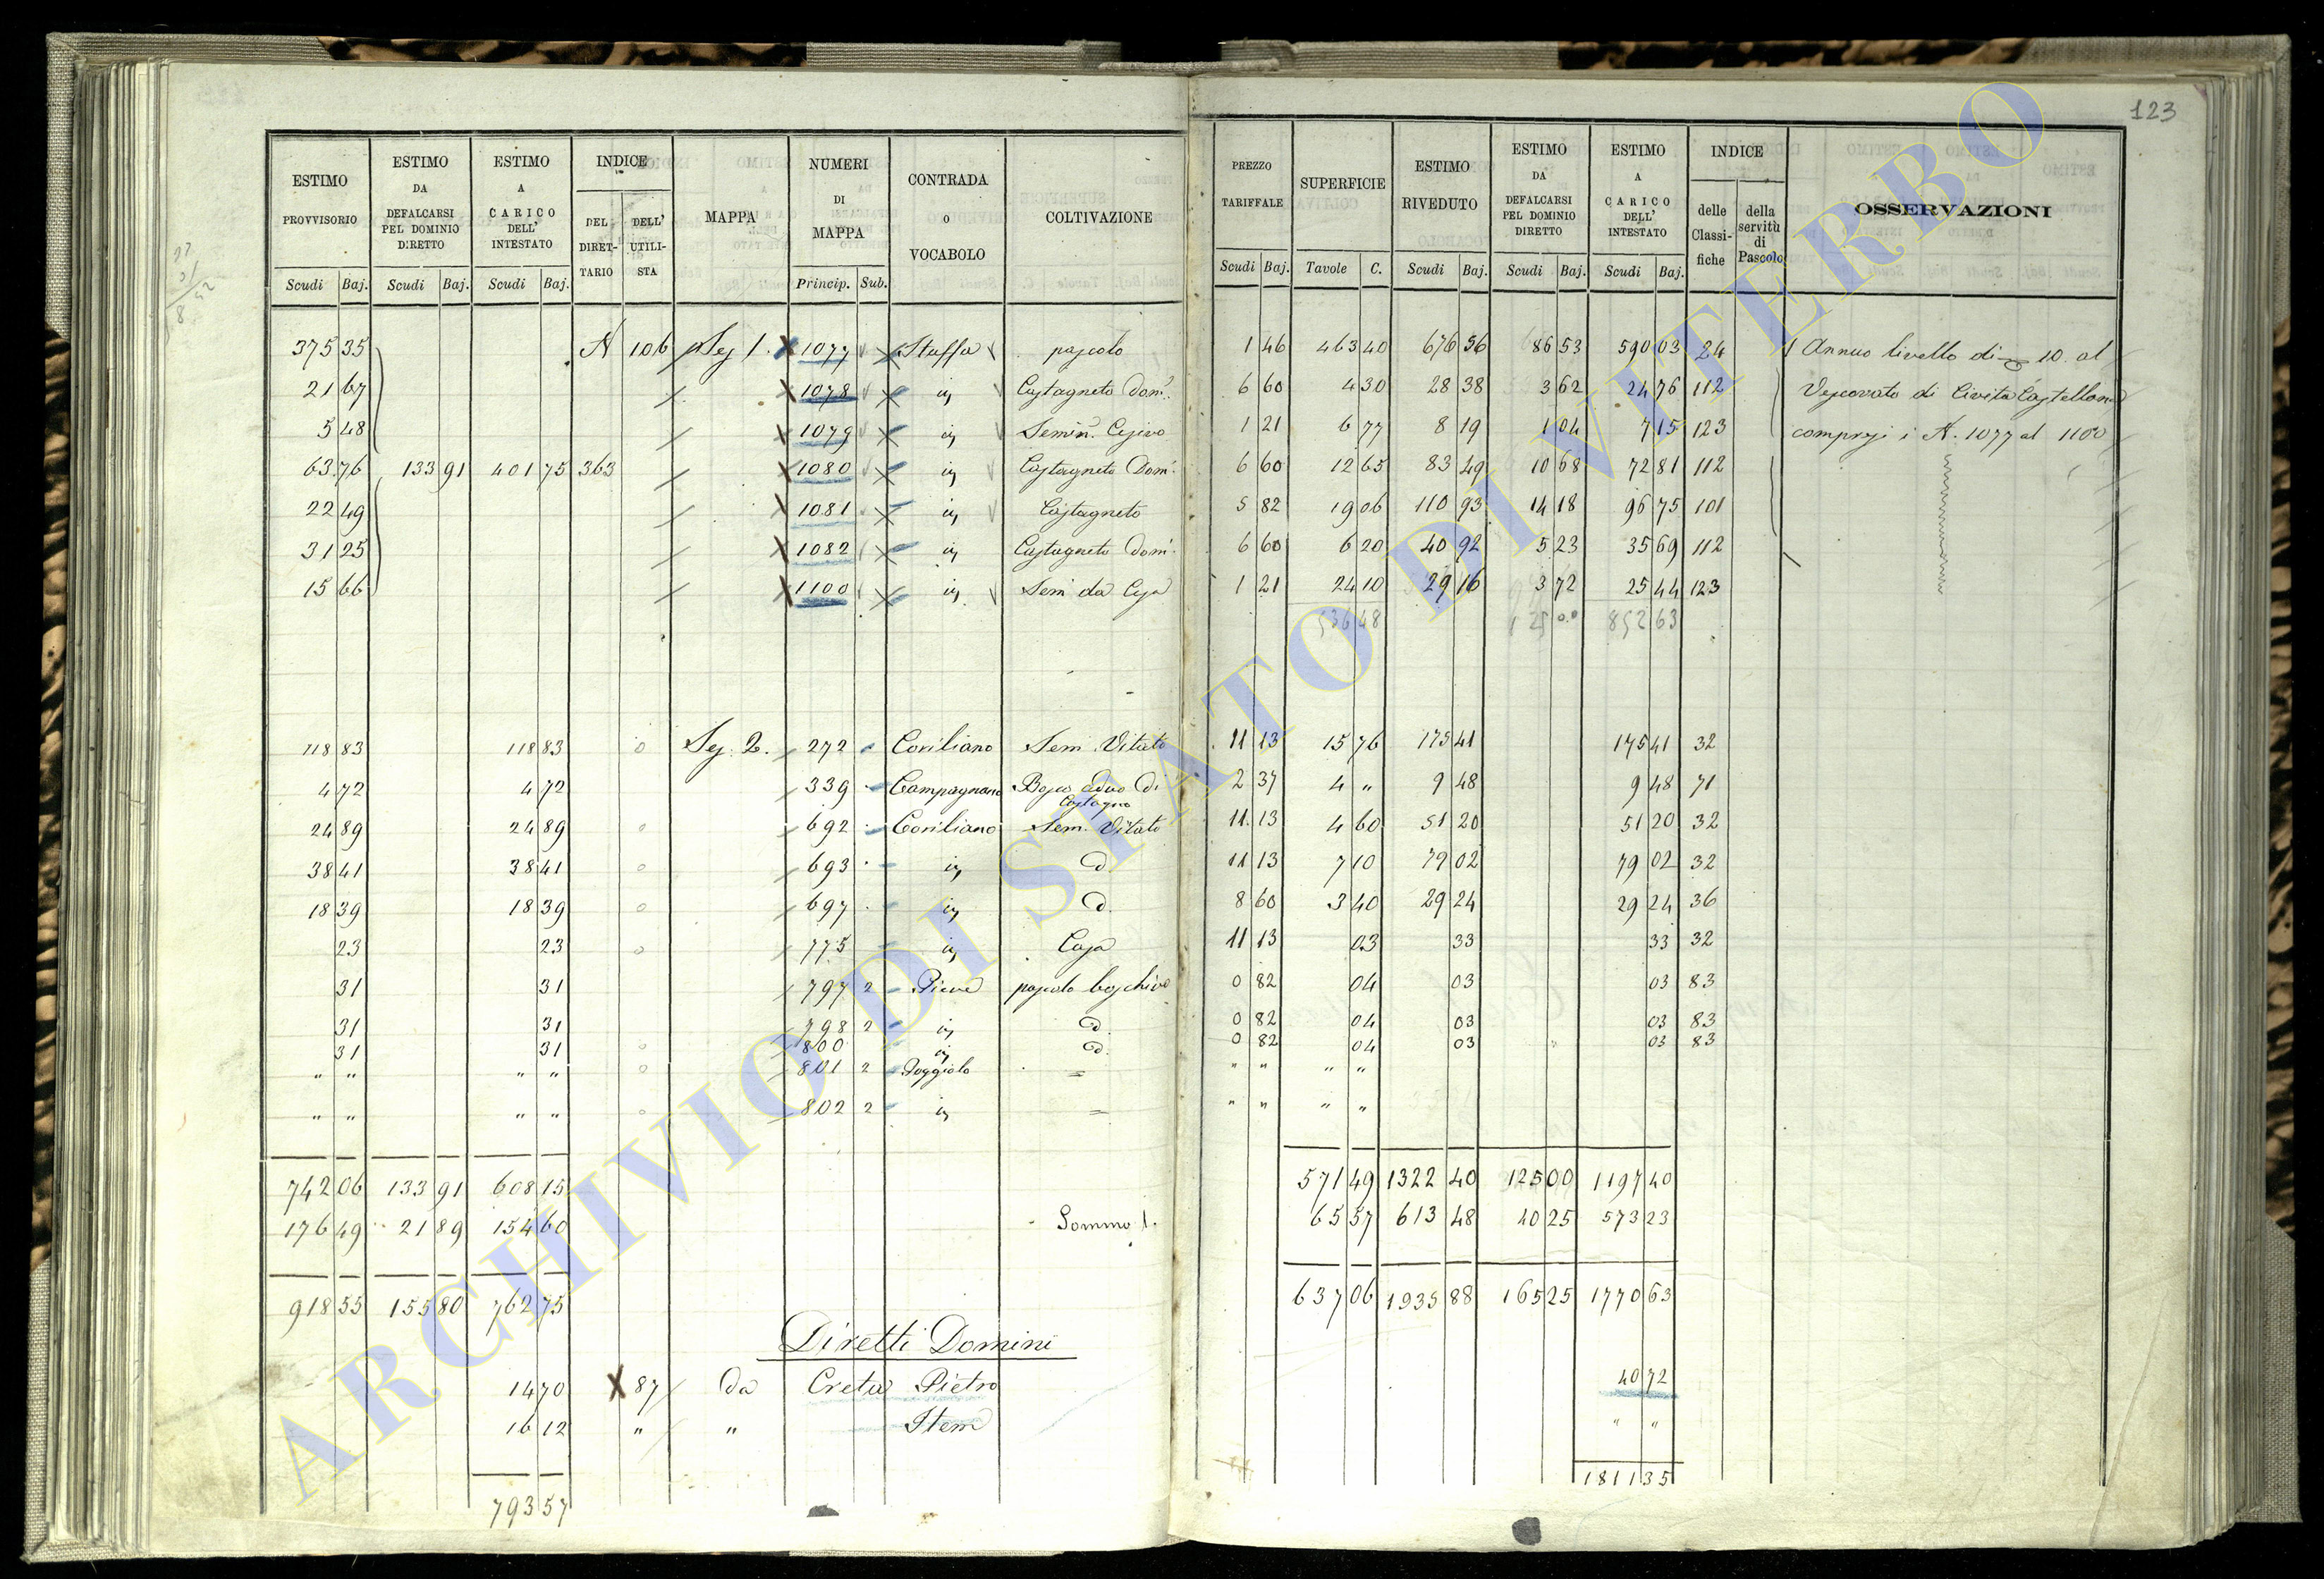 123
ESTIMO PROVVISORIO | ESTIMO DA DEFALCARSI PEL DOMINIO DIRETTO | ESTIMO A CARICO DELL' INTESTATO | INDICE DEL DIRETTARIO | DELL' UTILISTA | MAPPA | NUMERI DI MAPPA | CONTRADA O VOCABOLO | COLTIVAZIONE | PREZZO TARIFFALE | SUPERFICIE | ESTIMO RIVEDUTO | ESTIMO DA DEFALCARSI PEL DOMINIO DIRETTO | ESTIMO A CARICO DELL' INTESTATO | INDICE delle Classifiche | della servitù di Pascolo | OSSERVAZIONI
Scudi Baj. | Scudi Baj. | Scudi Baj. | Princip. Sub. | Scudi Baj. | Tavole C. | Scudi Baj. | Scudi Baj. | Scudi Baj.
375 35 | N 106 | Sez 1. | 1077 | Staffa | pascolo | 1 46 | 463 40 | 676 56 | 86 53 | 590 03 | 24 | Annuo livello di 10. al
21 67 | 1078 | id | Castagneto Dom. | 6 60 | 4 30 | 28 38 | 3 62 | 24 76 | 112 | Vescovato di Civita Castellana
5 48 | 1079 | id | Semin. Cesivo | 1 21 | 6 77 | 8 19 | 1 04 | 7 15 | 123 | compresi i N. 1077 al 1100
63 76 | 133 91 | 401 75 | 363 | 1080 | id | Castagneto Dom. | 6 60 | 12 65 | 83 49 | 10 68 | 72 81 | 112
22 49 | 1081 | id | Castagneto | 5 82 | 19 06 | 110 93 | 14 18 | 96 75 | 101
31 25 | 1082 | id | Castagneto Dom. | 6 60 | 6 20 | 40 92 | 5 23 | 35 69 | 112
15 66 | 1100 | id | Sem da Cesa | 1 21 | 24 10 | 29 16 | 3 72 | 25 44 | 123
536 48 | 125 00 | 852 63
118 83 | 118 83 | Sez. 2. | 272 | Coriliano | Sem. Vitato | 11 13 | 15 76 | 175 41 | 175 41 | 32
4 72 | 4 72 | 339 | Campagnano | Bosco ceduo di Castagno | 2 37 | 4 " | 9 48 | 9 48 | 71
24 89 | 24 89 | 692 | Coriliano | Sem. Vitato | 11 13 | 4 60 | 51 20 | 51 20 | 32
38 41 | 38 41 | 693 | id | d | 11 13 | 7 10 | 79 02 | 79 02 | 32
18 39 | 18 39 | 697 | id | d. | 8 60 | 3 40 | 29 24 | 29 24 | 36
23 | 23 | 775 | id | Casa | 11 13 | 03 | 33 | 33 | 32
31 | 31 | 797 2 | Pieve | pascolo boschivo | 0 82 | 04 | 03 | 03 | 83
31 | 31 | 798 2 | id | d. | 0 82 | 04 | 03 | 03 | 83
31 | 31 | 800 | id | d. | 0 82 | 04 | 03 | 03 | 83
" " | " " | 801 2 | Poggiolo | = | " " | " "
" " | " " | 802 2 | id | = | " " | " "
742 06 | 133 91 | 608 15 | 571 49 | 1322 40 | 125 00 | 1197 40
176 49 | 21 89 | 154 60 | Somma 1. | 65 57 | 613 48 | 40 25 | 573 23
918 55 | 155 80 | 762 75 | 637 06 | 1935 88 | 165 25 | 1770 63
Diretti Domini
14 70 | 87 | Da Creta Pietro | 40 72
16 12 | " | " | Item | " "
793 57 | 1811 35
ARCHIVIO DI STATO DI VITERBO